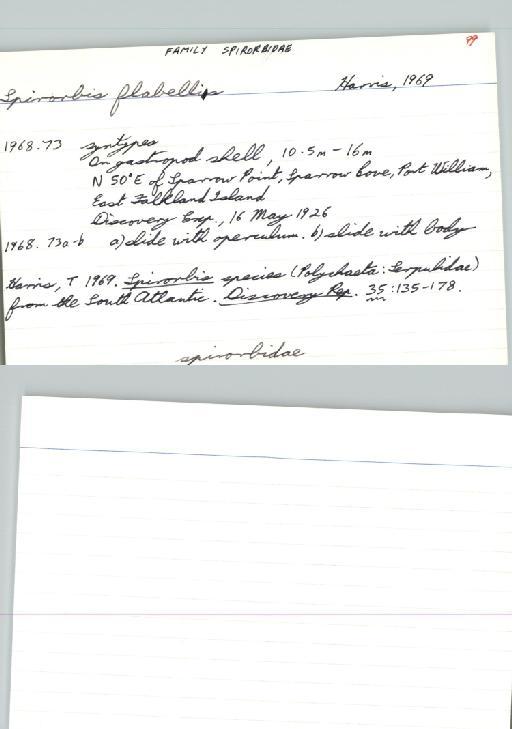 FAMILY SPIRORBIDAE
99
Spirorbis flabellis Harris, 1969
1968.73 syntypes
On gastropod shell, 10.5m - 16m
N 50°E of Sparrow Point, Sparrow Cove, Port William,
East Falkland Island
Discovery Exp., 16 May 1926
1968.73a-b a) slide with operculum. b) slide with body
Harris, T 1969. Spirorbis species (Polychaeta: Serpulidae)
from the South Atlantic. Discovery Rep. 35:135-178.
spirorbidae